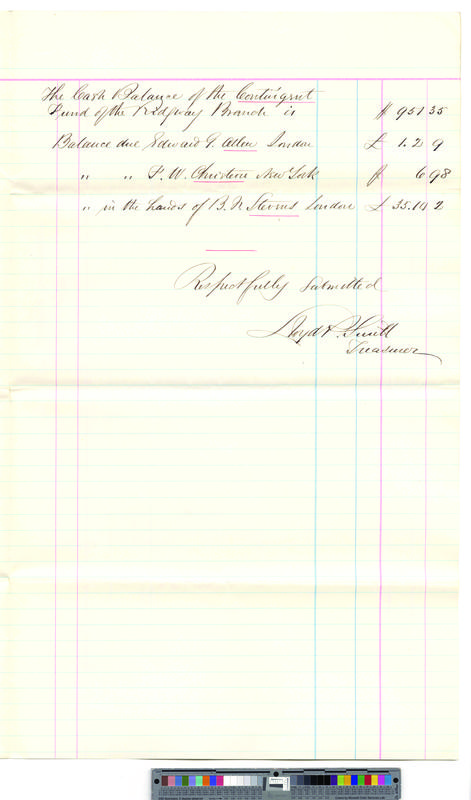 The Cash Balance of the Contingent
Fund of the Ridgway Branch is $ 951 35
Balance due Edward G. Allen London £ 1. 2 9
" " F. W. Christern New York $ 6 98
" in the hands of B. F. Stevens London £ 35. 14 2
Respectfully Submitted
Lloyd P. Smith
Treasurer